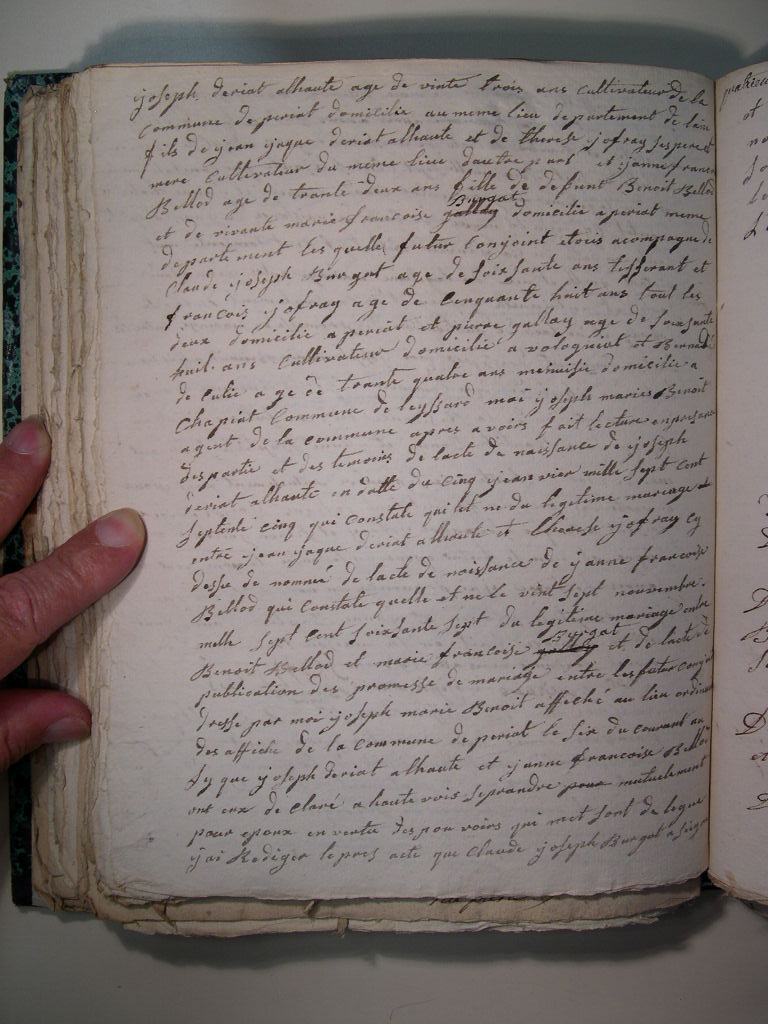 joseph deriat alhaute age de vinte trois ans cultivateur de la
commune de periat domicilié au meme lieu departement de lain
fils de jean jaque deriat alhaute et de therese jofray ses pere et
mere cultivateur du meme lieu dautre part et jeanne francoise
Bellod age de trante deux ans fille de defunt Benoit Bellod
et de vivante marie francoise gallay Burgat domicilie a periat meme
departement les quelle futur conjoint etois acompagne de
Claude joseph Burgat age de soissante ans tisserant et
francois jofray age de cinquante huit ans tout les
deux domicilie a periat et pierre gallay age de soissante
huit ans cultivateur domicilie a volognat et Bernard
de culie age de trante quatre ans menuisie domicilie a
Chapiat Commune de leyssard moi joseph marie Benoit
agent de la commune apres avoirs fait lecture en presance
des partie et des temoins de lacte de naissance de joseph
deriat alhaute en datte du cinq jeanvier mille sept cent
septente cinq qui constate quil et ne du legetime mariage
entre jean jaque deriat alhaute et therese jofray cy
desse de nommé de lacte de naissance de janne francoise
Bellod qui constate quelle et ne le vint sept nouvembre
mille sept cent soixsante sept du legitime mariage entre
Benoit Bellod et marie francoise gallay Burgat et de lacte de
publication des promesse de mariage entre les futur conjoint
dresse par moi joseph marie Benoit affiché au lieu ordinaire
des affiche de la commune de periat le six du courant an
sy que joseph deriat alhaute et janne francoise Bellod
ont eux de claré a haute vois se prandre pour mutuelement
pour epoux en vertu des pouvoirs qui met sont de legue
j ai Rediger le pres acte que Claude joseph Burgat a signe